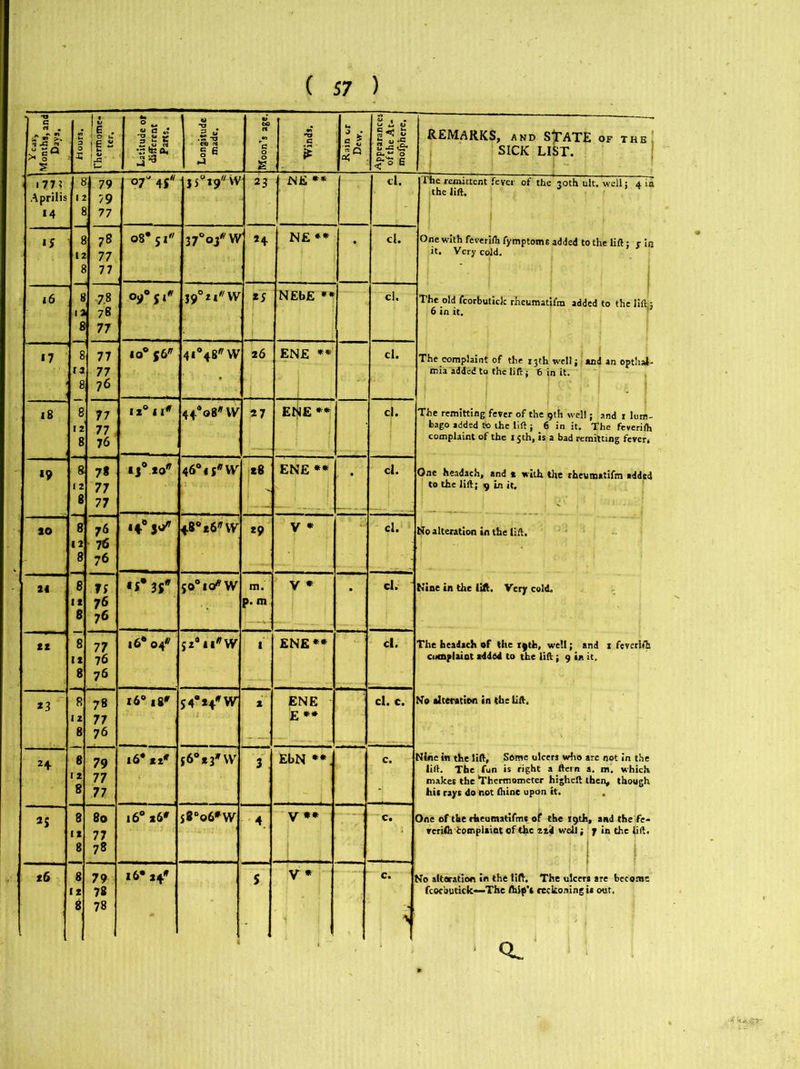 ( 57 )
Year, Months, and Days. | Hours. | Thermometer. | Latitude of different Parts. | Longitude made. | Moon's age. | Winds. | Rain or Dew. | Appearances of the Atmosphere. | REMARKS, AND STATE OF THE SICK LIST.
1773 Aprilis 14 | 8 | 79 | 07° 45" | 35°19"W | 23 | NE ** | | cl. | The remittent fever of the 30th ult. well; 4 in
12 | 79 | the lift.
8 | 77
15 | 8 | 78 | 08° 51" | 37°03"W | 24 | NE ** | • | cl. | One with feverish symptoms added to the list; 5 in
12 | 77 | it. Very cold.
8 | 77
16 | 8 | 78 | 09° 51" | 39°21"W | 25 | NEbE ** | | cl. | The old scorbutick rheumatism added to the list;
12 | 78 | 6 in it.
8 | 77
17 | 8 | 77 | 10° 56" | 41°48"W | 26 | ENE ** | | cl. | The complaint of the 13th well; and an opthal-
12 | 77 | mia added to the list; 6 in it.
8 | 76
18 | 8 | 77 | 12° 11" | 44°08"W | 27 | ENE ** | | cl. | The remitting fever of the 9th well; and 1 lum-
12 | 77 | bago added to the list; 6 in it. The feverish
8 | 76 | complaint of the 15th, is a bad remitting fever.
19 | 8 | 78 | 13° 20" | 46°15"W | 28 | ENE ** | • | cl. | One headach, and 1 with the rheumatism added
12 | 77 | to the list; 9 in it.
8 | 77
20 | 8 | 76 | 14° 30" | 48°26"W | 29 | V * | | cl. | No alteration in the list.
12 | 76
8 | 76
21 | 8 | 75 | 15° 35" | 50°10"W | m. p. m | V * | • | cl. | Nine in the list. Very cold.
12 | 76
8 | 76
22 | 8 | 77 | 16° 04" | 52°11"W | 1 | ENE ** | | cl. | The headach of the 19th, well; and 1 feverish
12 | 76 | complaint added to the list; 9 in it.
8 | 76
23 | 8 | 78 | 16° 18" | 54°24"W | 2 | ENE E ** | | cl. c. | No alteration in the list.
12 | 77
8 | 76
24 | 8 | 79 | 16° 22" | 56°23"W | 3 | EbN ** | | c. | Nine in the list, Some ulcers who are not in the
12 | 77 | list. The sun is right a stern a. m. which
8 | 77 | makes the Thermometer highest then, though
his rays do not shine upon it.
25 | 8 | 80 | 16° 26" | 58°06"W | 4 | V ** | | c. | One of the rheumatisms of the 19th, and the fe-
12 | 77 | verish complaint of the 22d well; 7 in the list.
8 | 78
26 | 8 | 79 | 16° 24" | | 5 | V * | | c. | No alteration in the list. The ulcers are become
12 | 78 | scorbutick—The ship's reckoning is out.
8 | 78